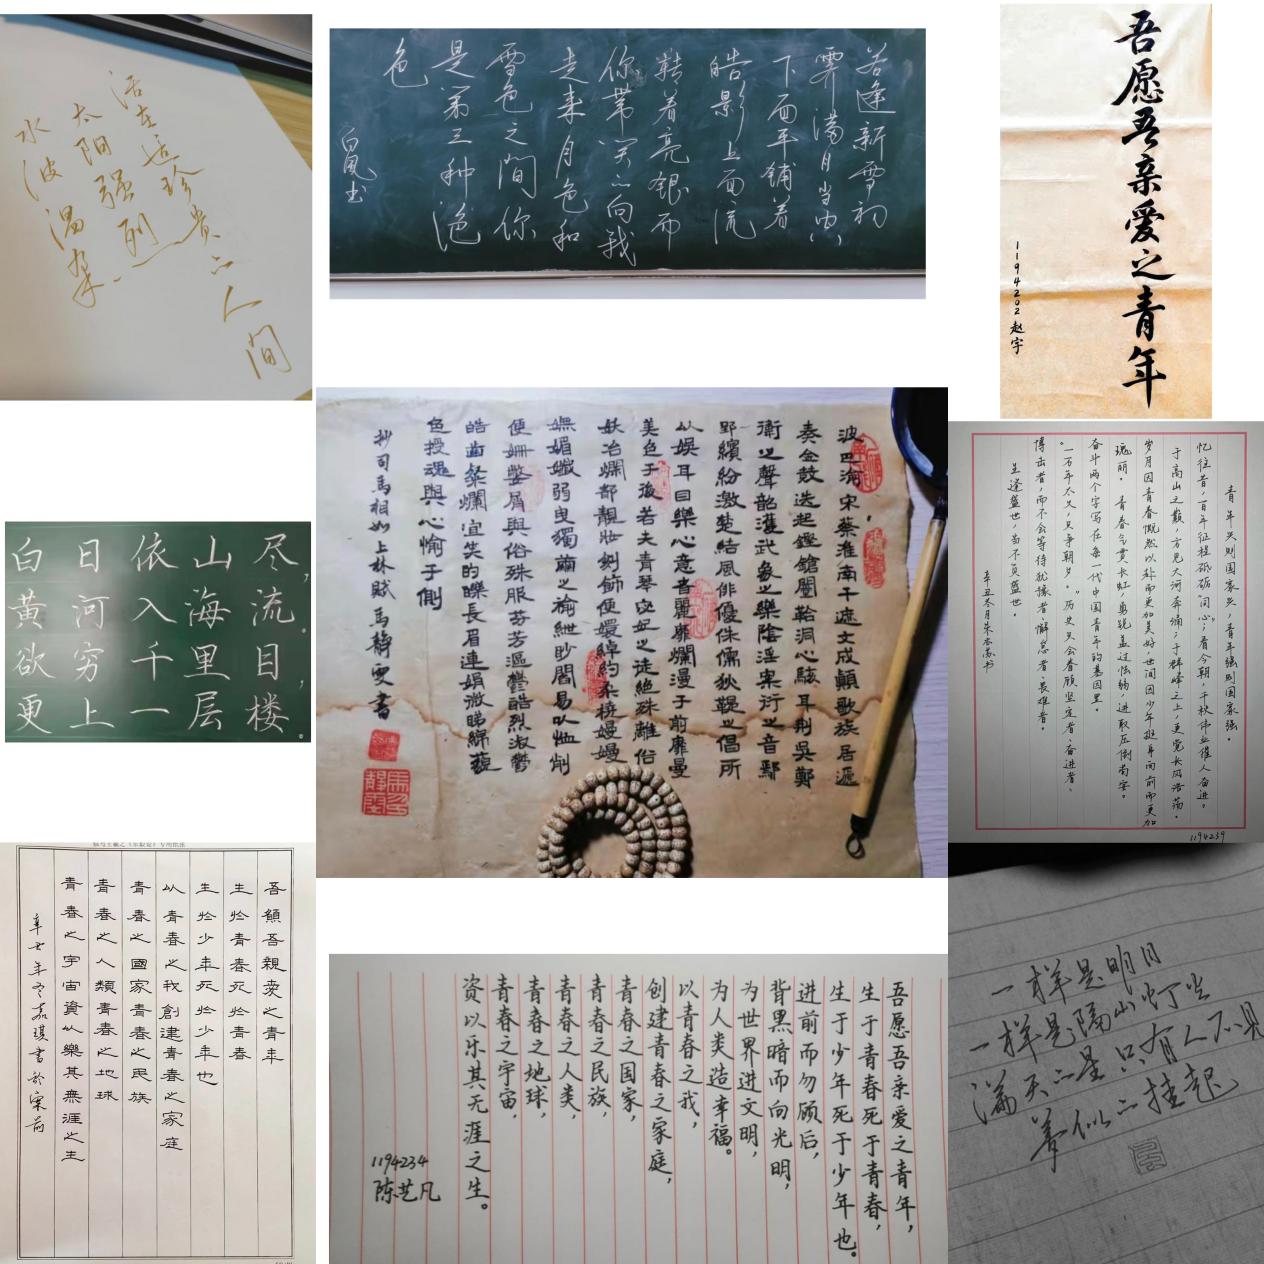 活在这珍贵的人间
太阳强烈
水波温柔
若逢新雪初
霁满月当空
下面平铺着
皓影上面流
转着亮银而
你带笑的向我
走来月色和
雪色之间你
是第三种绝
色
白凤书
吾愿吾亲爱之青年
1194202 赵宇
白日依山尽,
黄河入海流。
欲穷千里目,
更上一层楼。
波巴渝宋蔡淮南干遮文成颠歌族居递
奏金鼓迭起铿鎗闛鞈洞心骇耳荆吴郑
卫之聲韶濩武象之樂陰淫案衍之音鄢
郢繽紛激楚結風俳優侏儒狄鞮之倡所
以娱耳目樂心意者麗靡爛漫于前靡曼
美色于後若夫青琴宓妃之徒絶殊離俗
妖冶嫻都靚妝刻飾便嬛綽約柔橈嫚嫚
嫵媚孅弱曳獨繭之褕紲眇閻易以恤削
便姍嫳屑與俗殊服芬芳漚鬱酷烈淑鬱
皓齒粲爛宜笑的皪長眉連娟微睇綿藐
色授魂與心愉于側
抄司馬相如上林賦 馬静雯書
青年兴则国家兴,青年强则国家强。
忆往昔,百年征程砥砺"同心",看今朝,千秋伟业催人奋进。
于高山之巅,方见大河奔涌;于群峰之上,更觉长风浩荡。
岁月因青春慨然以赴而更加美好,世间因少年挺身而前而更加
瑰丽。青春气贯长虹,勇锐盖过怯弱,进取压倒苟安。
奋斗两个字写在每一代中国青年的基因里。
"一万年太久,只争朝夕。"历史只会眷顾坚定者、奋进者、
搏击者,而不会等待犹豫者、懈怠者、畏难者。
生逢盛世,当不负盛世。
辛丑冬月朱杰苏书
1194239
吾願吾親愛之青年
生於青春死於青春
生於少年死於少年也
以青春之我創建青春之家庭
青春之國家青春之民族
青春之人類青春之地球
青春之宇宙資以樂其無涯之生
吾愿吾亲爱之青年,
生于青春死于青春,
生于少年死于少年也。
进前而勿顾后,
背黑暗而向光明,
为世界进文明,
为人类造幸福。
以青春之我,
创建青春之家庭,
青春之国家,
青春之民族,
青春之人类,
青春之地球,
青春之宇宙,
资以乐其无涯之生。
1194234
陈艺凡
一样是明月
一样是隔山灯火
满天的星只有人不见
梦似的挂起